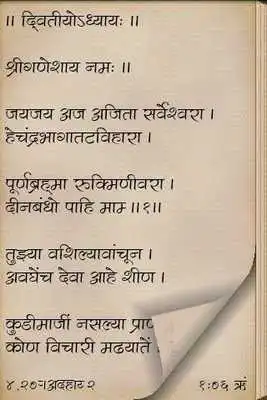 ॥ द्वितीयोऽध्यायः ॥
श्रीगणेशाय नमः ॥
जयजय अज अजिता सर्वेश्वरा ।
हेचंद्रभागातटविहारा ।
पूर्णब्रह्मा रुक्मिणीवरा ।
दीनबंधो पाहि माम ॥१॥
तुझ्या वशिल्यावांचून ।
अवघेंच देवा आहे शीण ।
कुडीमाजीं नसल्या
कोण विचारी मढयातें